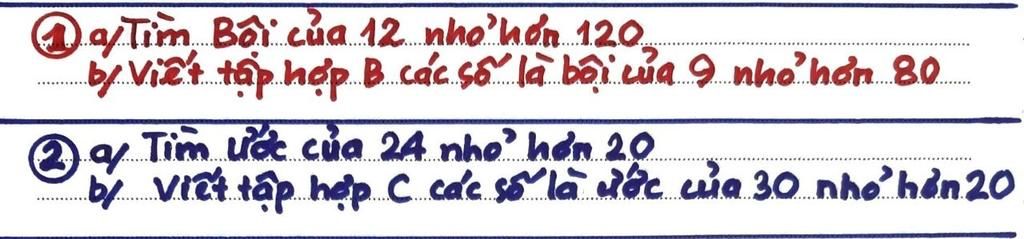 ① a/ Tìm Bội của 12 nhỏ hơn 120
b/ Viết tập hợp B các số là bội của 9 nhỏ hơn 80
② a/ Tìm ước của 24 nhỏ hơn 20
b/ Viết tập hợp C các số là ước của 30 nhỏ hơn 20